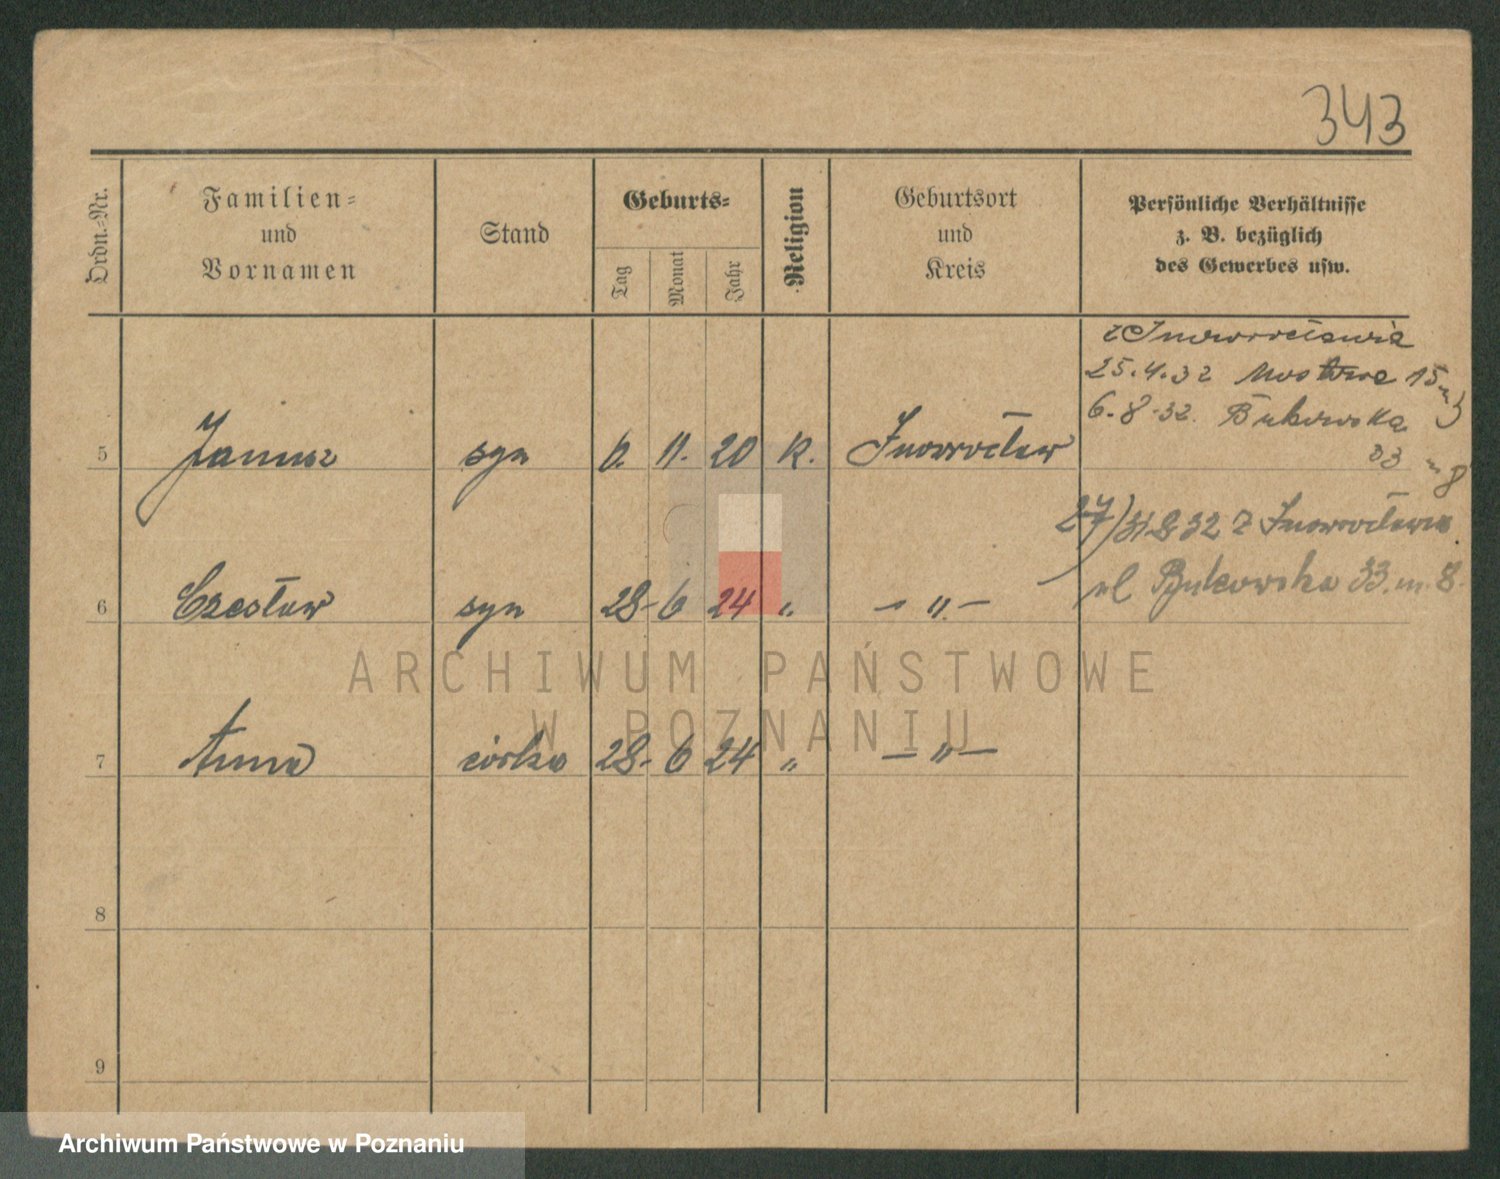 343
Ordn.-Nr.
Familien-
und
Vornamen
Stand
Geburts-
Tag
Monat
Jahr
Religion
Geburtsort
und
Kreis
Persönliche Verhältnisse
z. B. bezüglich
des Gewerbes usw.
z Inowrocławia
25.4.32 Mostowa 15 m 3
6.8.32. Bukowska
33 m 8
5 Janusz syn 6. 11. 20 K. Inowrocław
27/31 8 32 z Inowrocławia
ul Bukowska 33. m. 8.
6 Czesław syn 28- 6 24 „ - „ -
ARCHIWUM PAŃSTWOWE
W POZNANIU
7 Anna córka 28- 6 24 „ - „ -
8
9
Archiwum Państwowe w Poznaniu